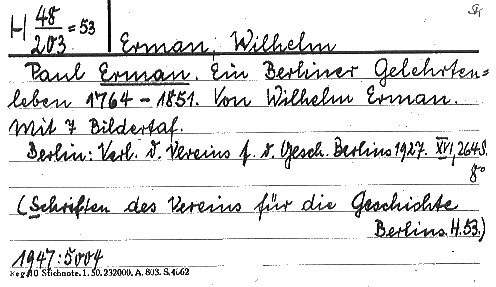 H 48/203 = 53
Sk
Erman, Wilhelm
Paul Erman. Ein Berliner Gelehrten=
leben 1764 - 1851. Von Wilhelm Erman.
Mit 7 Bildertaf.
Berlin: Verl. d. Vereins f. d. Gesch. Berlins 1927. XVI, 264 S.
8°
(Schriften des Vereins für die Geschichte
Berlins. H. 53.)
1947:5004
Reg. 10 Stichnote. 1. 50. 232000. A. 803. S. 4662